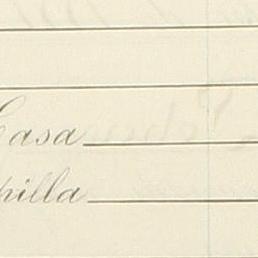 Casa
pilla